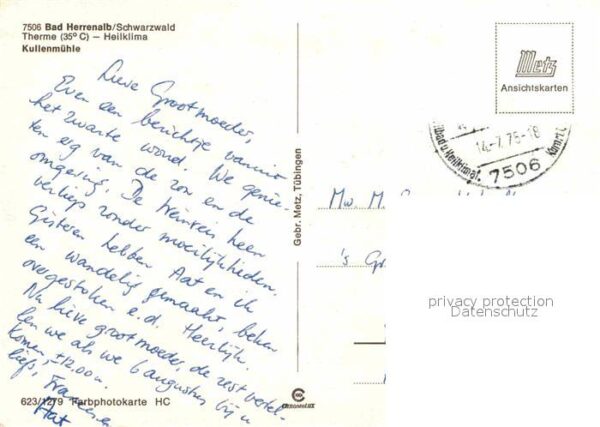 7506 Bad Herrenalb/Schwarzwald
Therme (35° C) — Heilklima
Kullenmühle
Lieve Grootmoeder,
Even een berichtje vanuit
het zwarte woud. We genie-
ten erg van de zon en de
omgeving. De treinreis heen
verliep zonder moeilijkheden.
Gisteren hebben Aat en ik
een wandeling gemaakt, beken
overgestoken e.d. Heerlijk.
Nu lieve grootmoeder, de rest vertel-
len we als we 6 augustus bij u
komen, ± 12.00 u.
liefs, en
Aat
623/1279 Farbphotokarte HC
Gebr. Metz, Tübingen
CHROMOLUX
Metz
Ansichtskarten
14.-7.75-18
7506
Mw. M.
's Gr
privacy protection
Datenschutz